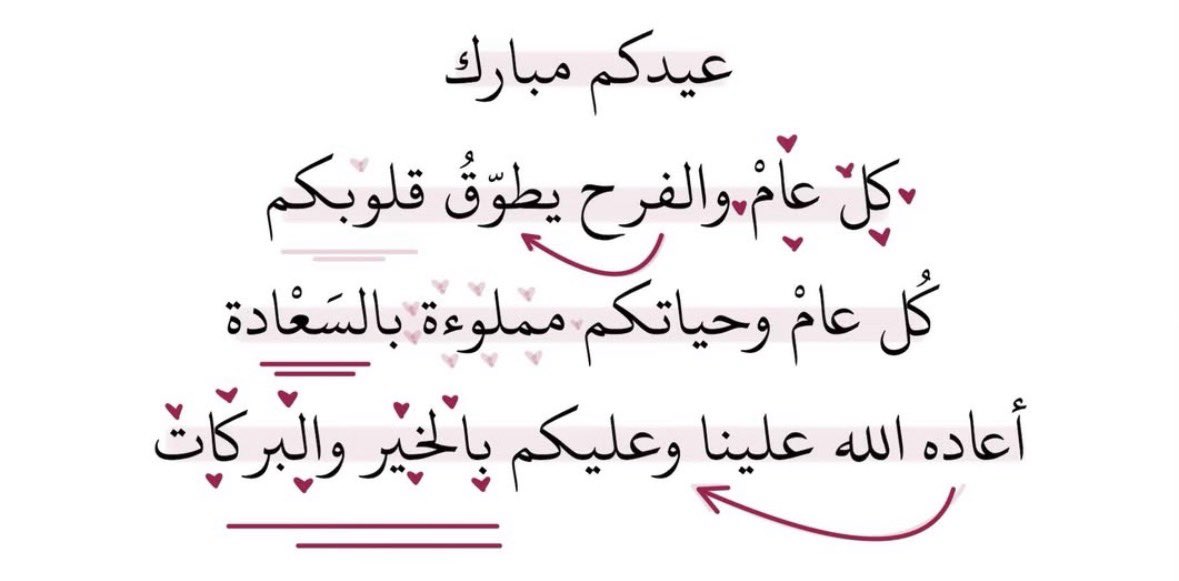 عيدكم مبارك
كلّ عامْ والفرح يطوّقُ قلوبكم
كُل عامْ وحياتكم مملوءة بالسَعْادة
أعاده الله علينا وعليكم بالخير والبركات